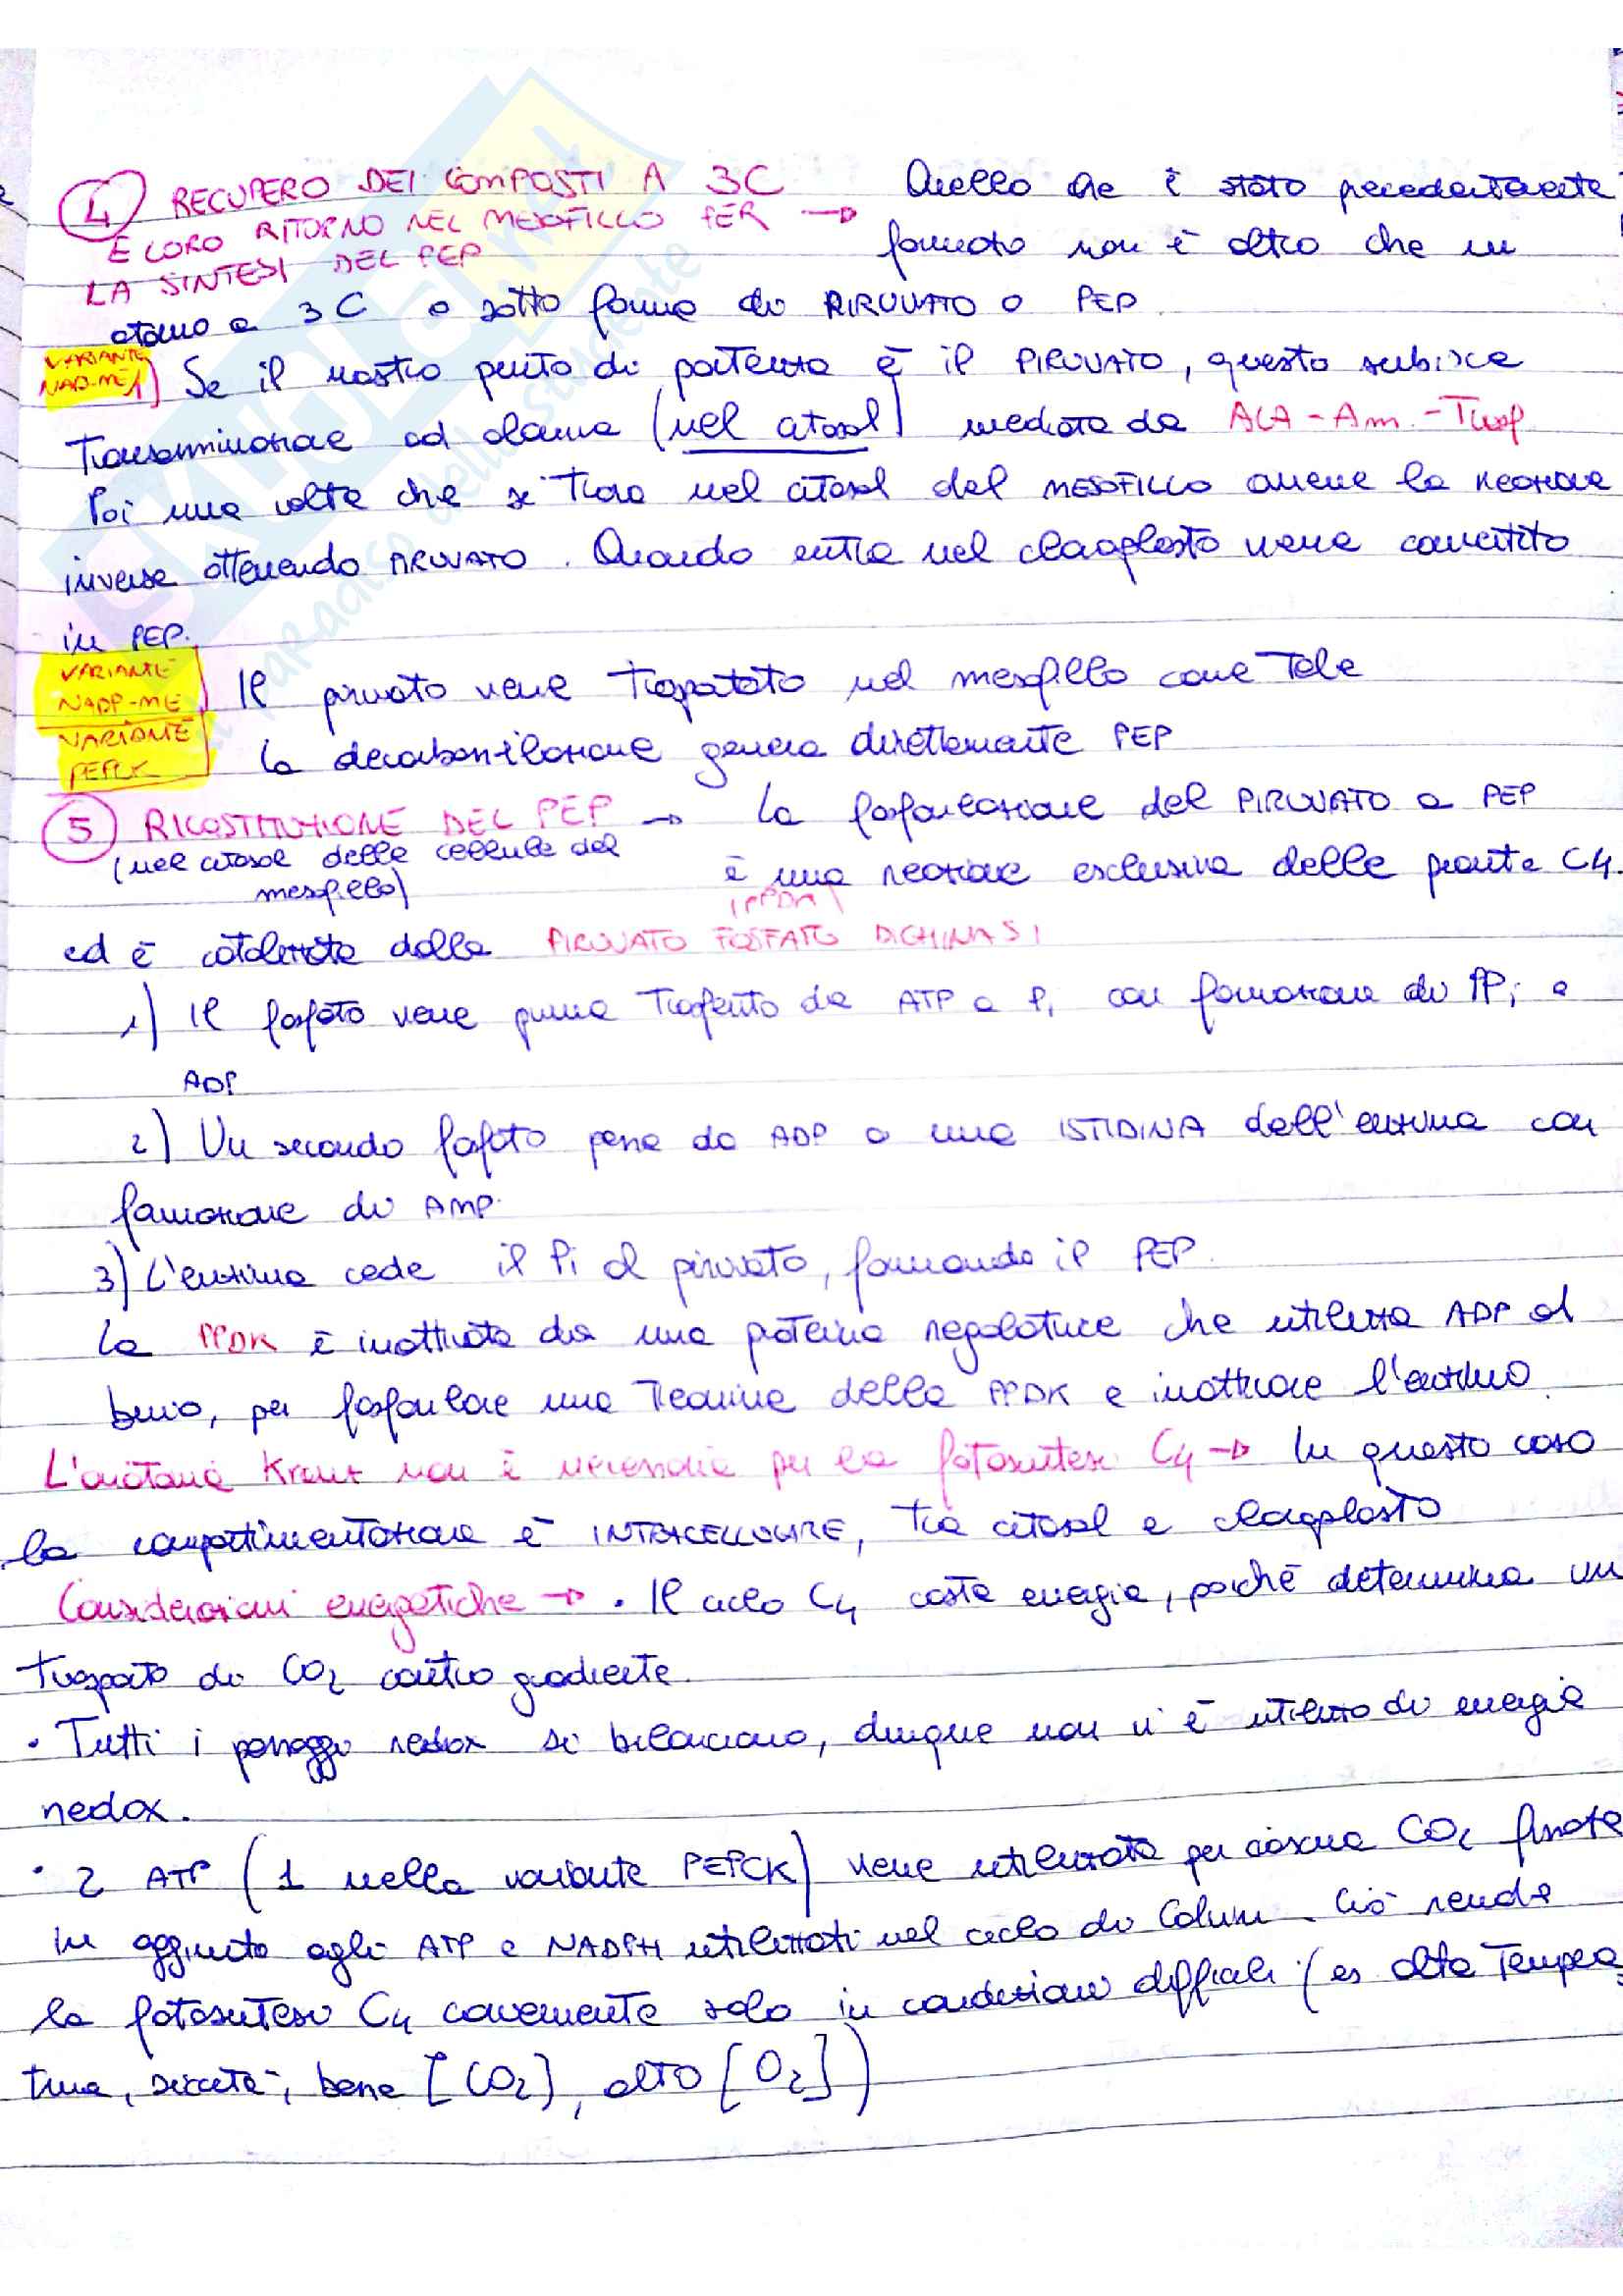 4 RECUPERO DEI COMPOSTI A 3C
E LORO RITORNO NEL MESOFILLO PER →
LA SINTESI DEL PEP
Quello che è stato precedentemente
formato non è altro che un
atomo a 3C o sotto forma di PIRUVATO o PEP
VARIANTE
NAD-ME 1) Se il nostro punto di partenza è il PIRUVATO, questo subisce
transaminazione ad alanina (nel citosol) mediata da ALA-Am-Trasf
Poi una volta che si trova nel citosol del MESOFILLO avviene la reazione
inversa ottenendo PIRUVATO. Quando entra nel cloroplasto viene convertito
in PEP.
VARIANTE
NADP-ME
Il piruvato viene trasportato nel mesofillo come tale
VARIANTE
PEPCK
la decarbossilazione genera direttamente PEP
5 RICOSTITUZIONE DEL PEP → La fosforilazione del PIRUVATO a PEP
(nel citosol delle cellule del
mesofillo)
è una reazione esclusiva delle piante C4.
(PPDK)
ed è catalizzata dalla PIRUVATO FOSFATO DICHINASI
1) Il fosfato viene prima trasferito da ATP a Pi con formazione di PPi e
ADP
2) Un secondo fosfato passa da ADP a una ISTIDINA dell'enzima con
formazione di AMP.
3) L'enzima cede il Pi al piruvato, formando il PEP.
La PPDK è inattivata da una proteina regolatrice che utilizza ADP al
buio, per fosforilare una treonina della PPDK e inattivare l'enzima.
L'anatomia Kranz non è necessaria per la fotosintesi C4 → In questo caso
la compartimentazione è INTERCELLULARE, tra citosol e cloroplasto
Considerazioni energetiche → • Il ciclo C4 costa energia, poiché determina un
trasporto di CO2 contro gradiente.
• Tutti i passaggi redox si bilanciano, dunque non vi è utilizzo di energia
redox.
• 2 ATP (1 nella variante PEPCK) viene utilizzata per ciascuna CO2 fissata
in aggiunta agli ATP e NADPH utilizzati nel ciclo di Calvin. Ciò rende
la fotosintesi C4 conveniente solo in condizioni difficili (es alta tempera
tura, siccità, bassa [CO2], alto [O2])